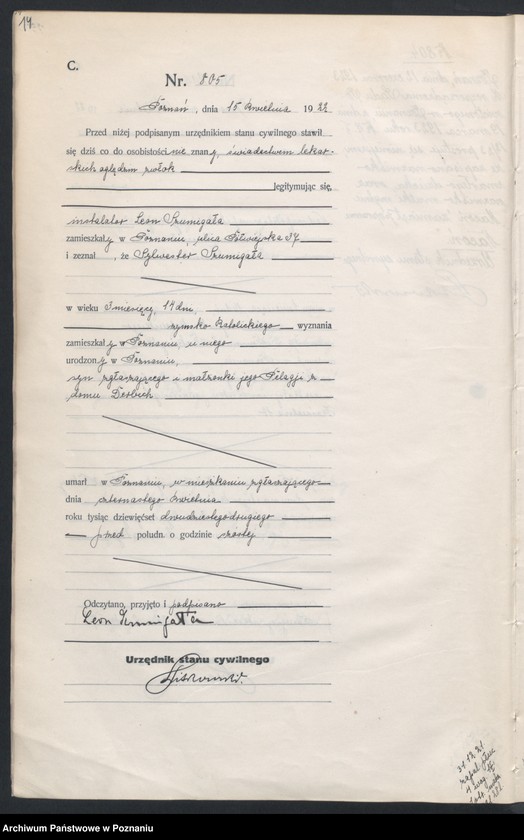 14
C.
Nr. 805
Poznań, dnia 15 kwietnia 1922
Przed niżej podpisanym urzędnikiem stanu cywilnego stawił
się dziś co do osobistości nie znany, świadectwem lekar-
skich oględzin zwłok
legitymując się,
instalator Leon Szumigała
zamieszkały w Poznaniu, ulica Półwiejska 37
i zeznał, że Sylwester Szumigała
w wieku 3 miesięcy, 14 dni,
rzymsko katolickiego wyznania
zamieszkały w Poznaniu, u niego
urodzony w Poznaniu,
syn zgłaszającego i małżonki jego Pelagji z
domu
umarł w Poznaniu, w mieszkaniu zgłaszającego
dnia czternastego kwietnia
roku tysiąc dziewięćset dwudziestegodrugiego
przed połudn. o godzinie szóstej
Odczytano, przyjęto i podpisano
Leon Szumigała
Urzędnik stanu cywilnego
Archiwum Państwowe w Poznaniu